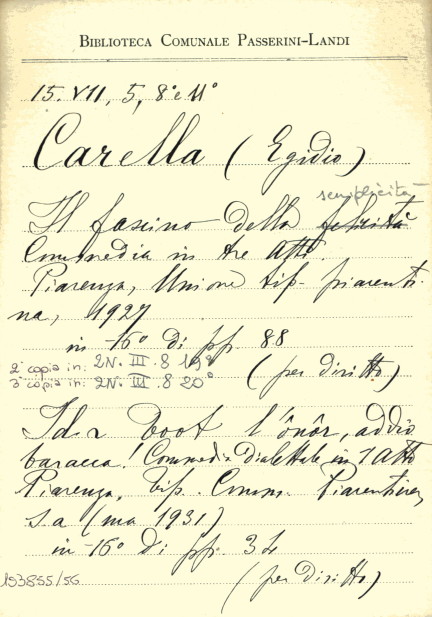 BIBLIOTECA COMUNALE PASSERINI-LANDI
15. VII, 5, 8° e 11°
Carella (Egidio)
semplicità
Il fascino della felicità
Commedia in tre Atti.
Piacenza, Unione tip. piacenti-
na, 1927
in -16° di pp. 88
2ª copia in: 2N. III. 8 19°
(per diritto)
3ª copia in: 2N. III. 8 20°
boot l'ônôr, addio
baracca! Commedia Dialettale in 1 Atto
Piacenza, tip. Comm. Piacentina,
s. a (ma 1931)
in -16° di pp. 34
193855/56
(per diritto)